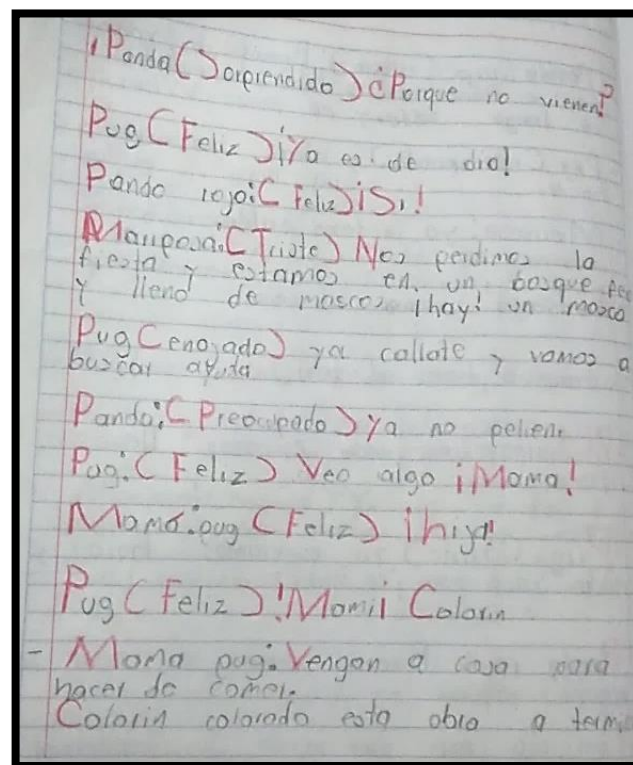 ¡Panda (Sorprendido) ¿Porque no vienen?
Pug (Feliz) ¡Ya es de dia!
Panda rojo: (Feliz) ¡Si!
Mariposa: (Triste) Nos perdimos la
fiesta y estamos en un bosque feo
y lleno de moscos ¡hay! un mosco
Pug (enojado) ya callate y vamos a
buscar ayuda
Panda: (Preocupado) ya no peleen
Pug: (Feliz) Veo algo ¡Mama!
Mamá: pug (Feliz) ¡hija!
Pug (Feliz) !Mami¡ Colorin
- Mama pug: Vengan a casa para
hacer de comer.
Colorin colorado esta obra a